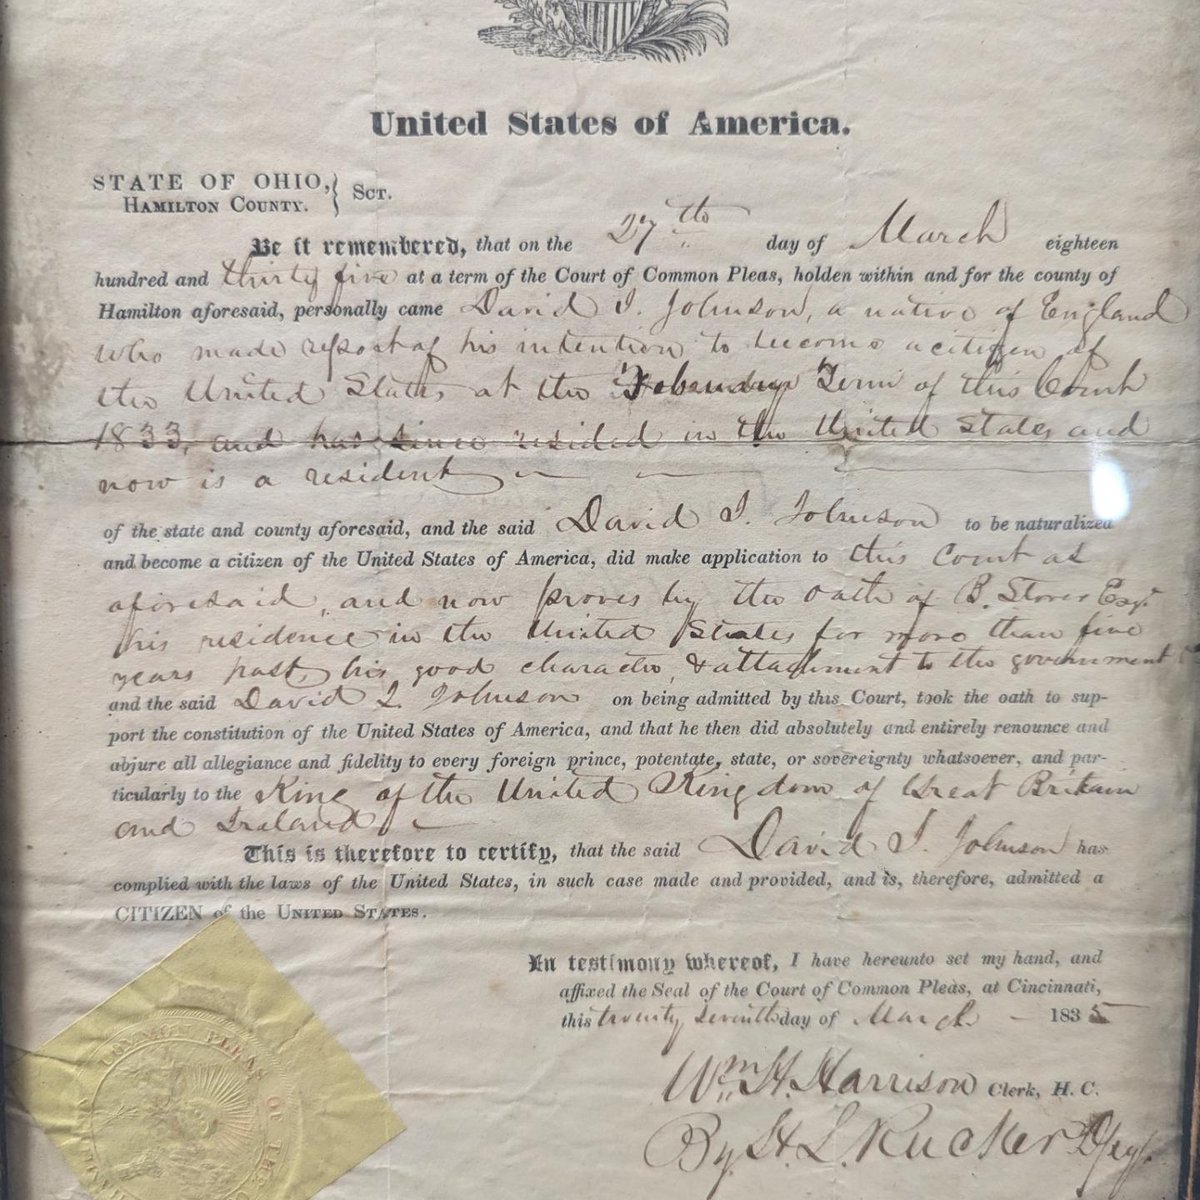 United States of America.
STATE OF OHIO, } Sct.
HAMILTON COUNTY.
Be it remembered, that on the 27th day of March eighteen
hundred and thirty five at a term of the Court of Common Pleas, holden within and for the county of
Hamilton aforesaid, personally came David I. Johnson, a native of England
who made report of his intention to become a citizen of
the United States at the February Term of this Court
1833, and has since resided in the United States and
now is a resident
of the state and county aforesaid, and the said David I. Johnson to be naturalized
and become a citizen of the United States of America, did make application to this Court as
aforesaid, and now proves by the oath of B. Storer Esqr
his residence in the United States for more than five
years past, his good character, & attachment to the government
and the said David I. Johnson on being admitted by this Court, took the oath to sup-
port the constitution of the United States of America, and that he then did absolutely and entirely renounce and
abjure all allegiance and fidelity to every foreign prince, potentate, state, or sovereignty whatsoever, and par-
ticularly to the King of the United Kingdom of Great Britain
and Ireland
This is therefore to certify, that the said David I. Johnson has
complied with the laws of the United States, in such case made and provided, and is, therefore, admitted a
CITIZEN of the UNITED STATES.
In testimony whereof, I have hereunto set my hand, and
affixed the Seal of the Court of Common Pleas, at Cincinnati,
this twenty seventh day of March 1835
Wm H. Harrison Clerk, H. C.
By H. L. Rucker Dpy.
COMMON PLEAS OF THE